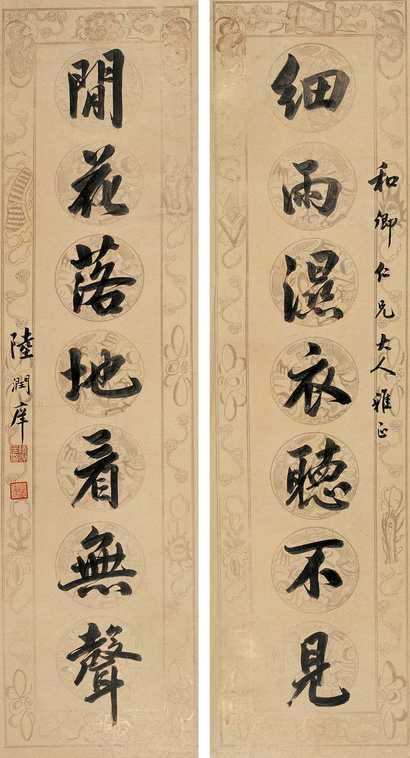 和卿仁兄大人雅正
細雨濕衣聽不見
閒花落地看無聲
陸潤庠